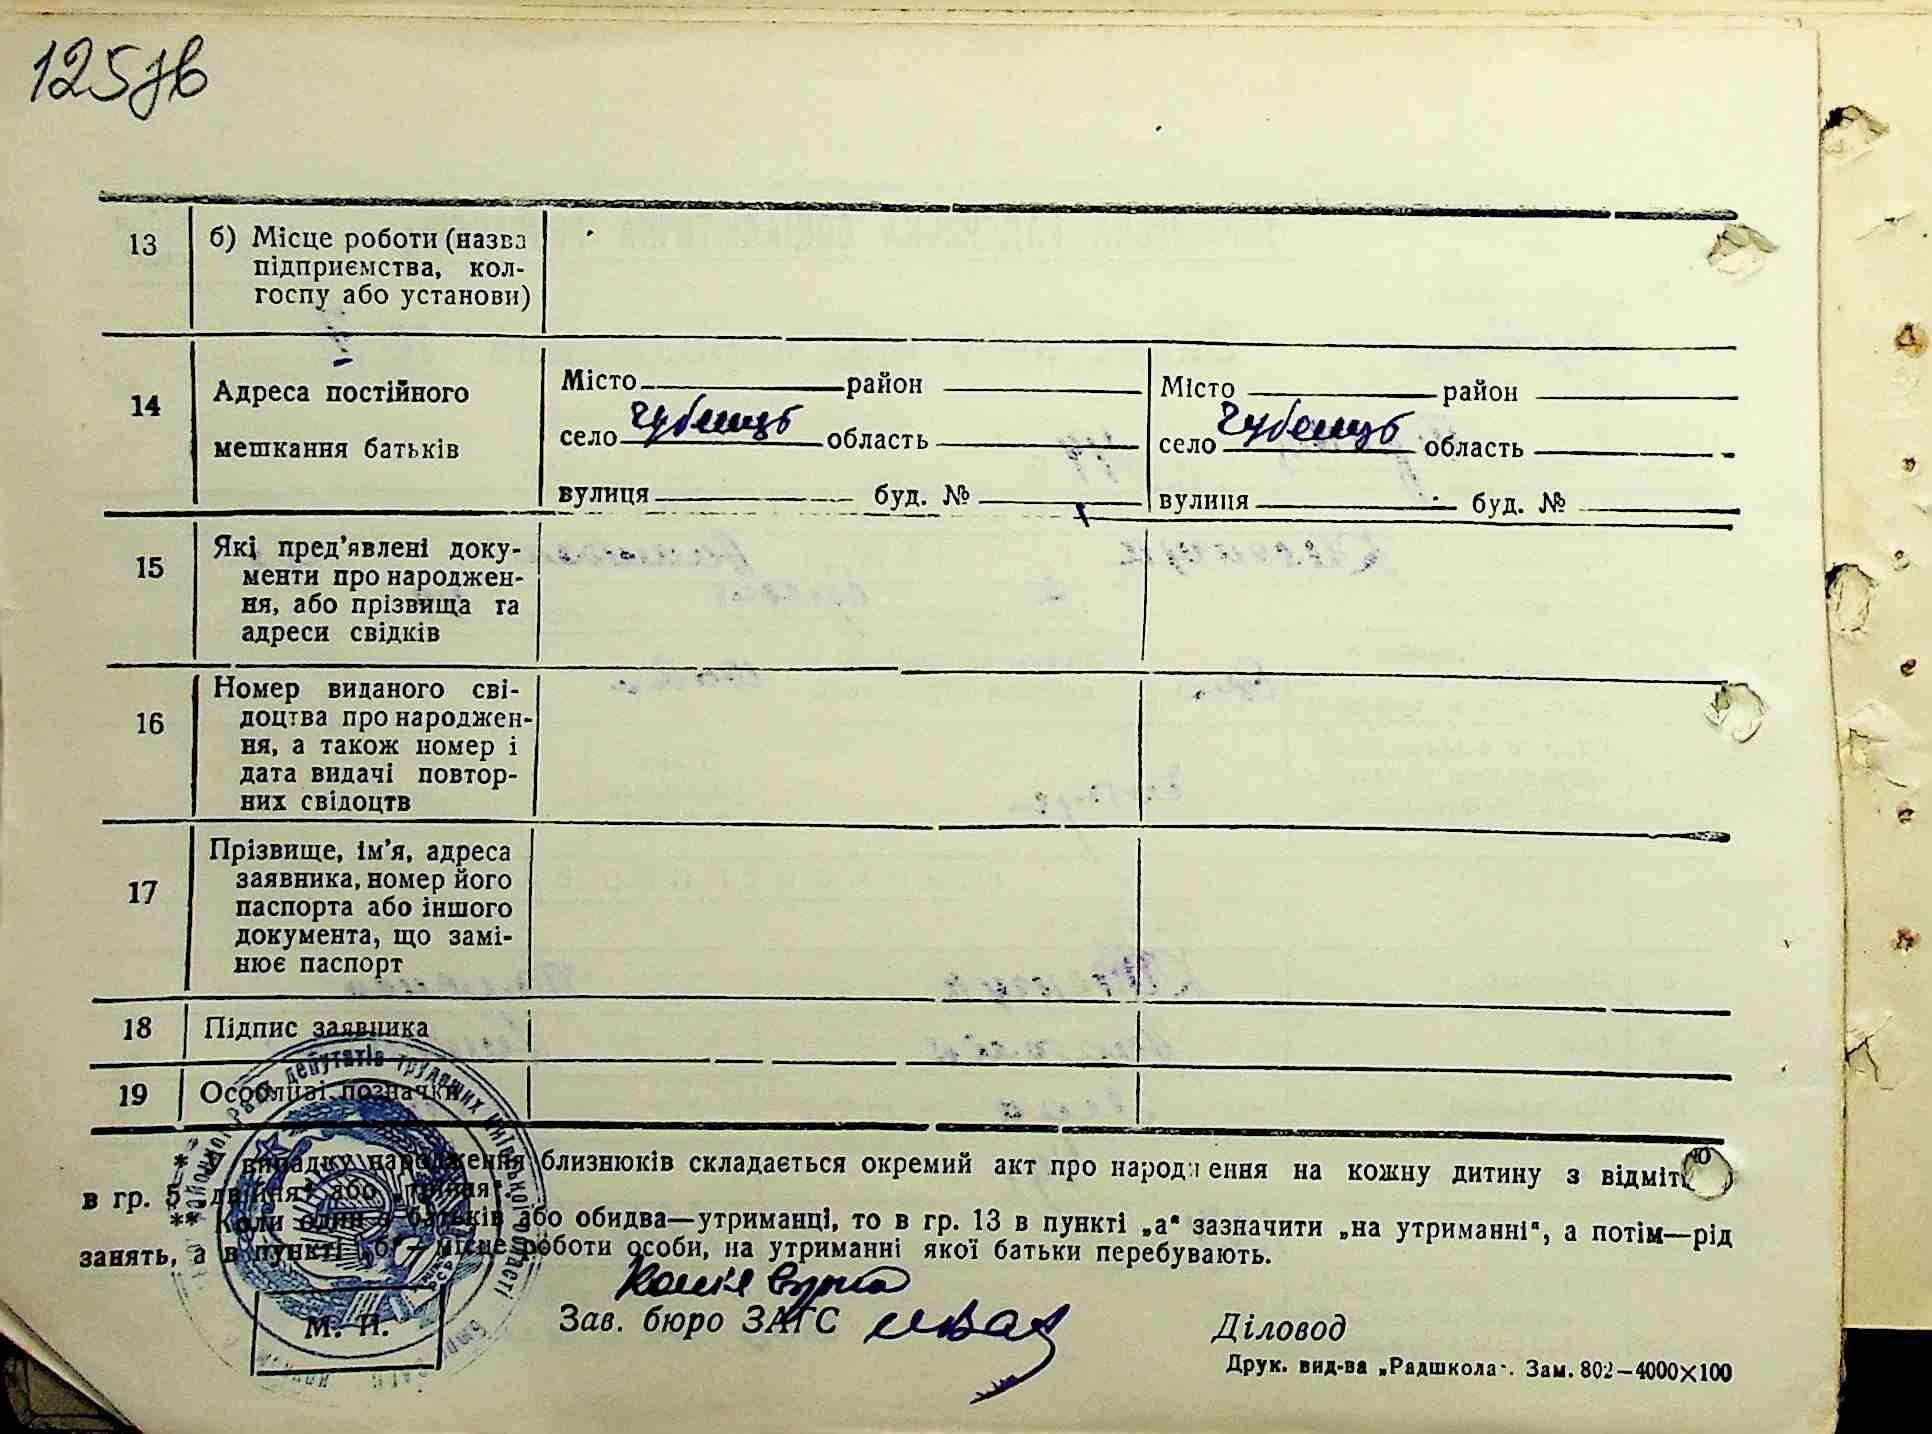 125зв
13
б) Місце роботи (назва
підприємства, кол-
госпу або установи)
14
Адреса постійного
мешкання батьків
Місто район
село Чубенцѣ область
вулиця буд. №
Місто район
село Чубенцѣ область
вулиця буд. №
15
Які пред'явлені доку-
менти про народжен-
ня, або прізвища та
адреси свідків
16
Номер виданого сві-
доцтва про народжен-
ня, а також номер і
дата видачі повтор-
них свідоцтв
17
Прізвище, ім'я, адреса
заявника, номер його
паспорта або іншого
документа, що замі-
нює паспорт
18
Підпис заявника
19
Особливі позначки
районної Ради депутатів трудящих Київської області
* У випадку народження близнюків складається окремий акт про народження на кожну дитину з відміт
в гр. 5 „двійня" або „трійня".
** Коли один з батьків або обидва—утриманці, то в гр. 13 в пункті „а" зазначити „на утриманні", а потім—рід
занять, а в пункті „б"—місце роботи особи, на утриманні якої батьки перебувають.
Копія вірна
Зав. бюро ЗАГС
М. П.
Діловод
Друк. вид-ва „Радшкола". Зам. 802—4000×100